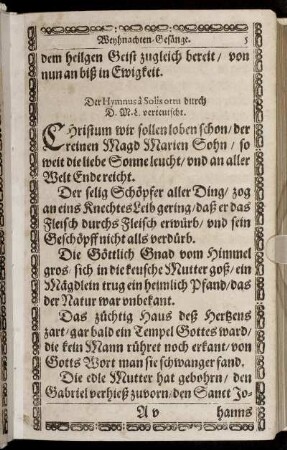 Weyhnachten-Gesänge. 5
dem heilgen Geist zugleich bereit / von
nun an biß in Ewigkeit.
Der Hymnus â Solis ortu durch
D. M. L. verteutscht.
CHristum wir sollen loben schon / der
reinen Magd Marien Sohn / so
weit die liebe Sonne leucht / vnd an aller
Welt Ende reicht.
Der selig Schöpfer aller Ding / zog
an eins Knechtes Leib gering / daß er das
Fleisch durchs Fleisch erwürb / vnd sein
Geschöpff nicht alls verdürb.
Die Göttlich Gnad vom Himmel
gros / sich in die keusche Mutter goß / ein
Mägdlein trug ein heimlich Pfand / das
der Natur war vnbekant.
Das züchtig Haus deß Hertzens
zart / gar bald ein Tempel Gottes ward /
die kein Mann rühret noch erkant / von
Gotts Wort man sie schwanger fand.
Die edle Mutter hat gebohrn / den
Gabriel verhieß zuvorn / den Sanct Jo-
A v hanns